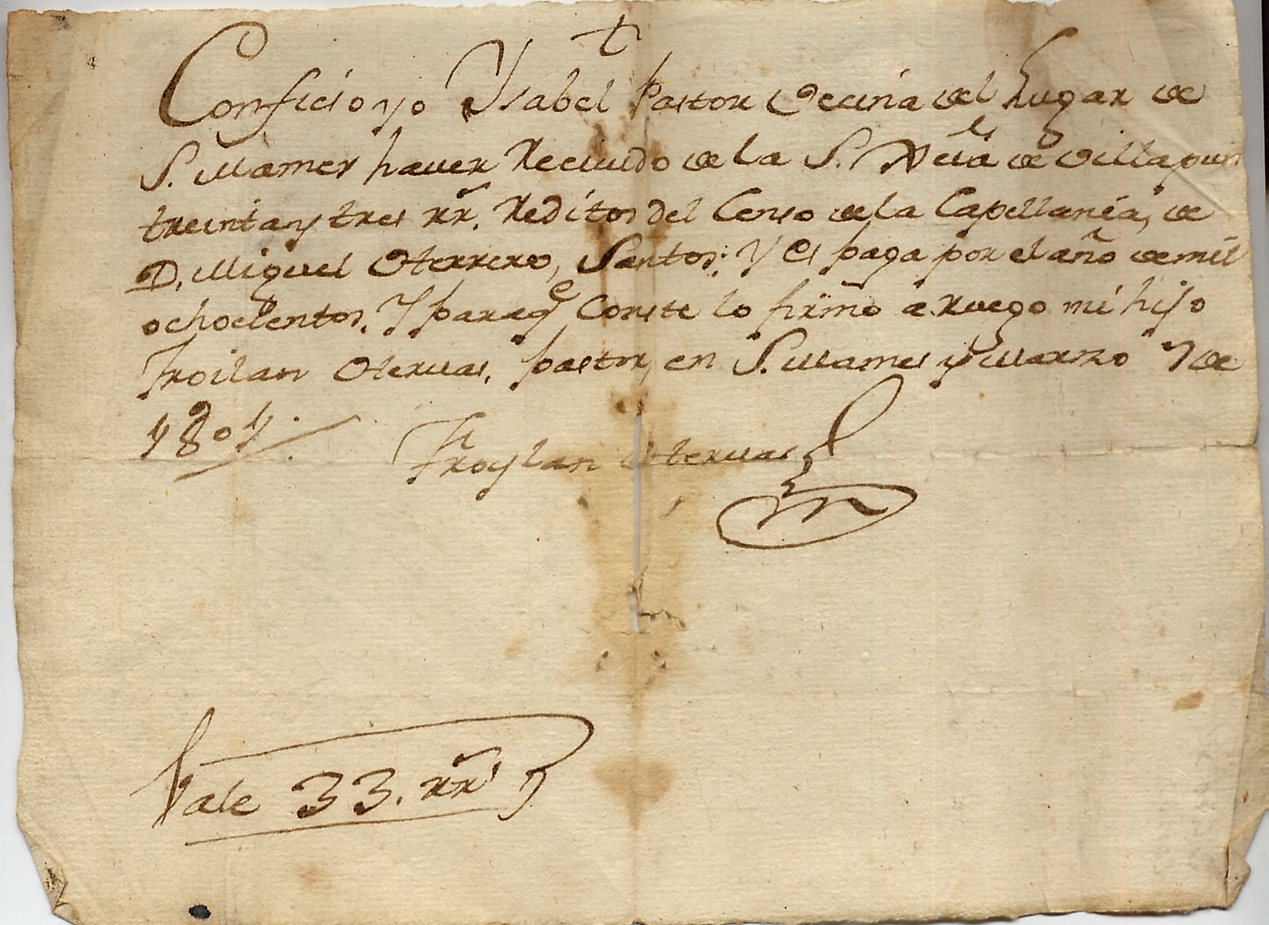 †
Conficio yo Ysabel Pastor Vecina del Lugar de
S. Mames haver Recivido de la S.
treinta y tres rr.s Reditos del Censo de la Capellania, de
D. Miguel Oterrero, Santos; Y es paga por el año de mil
ochocientos. Y para q.e Conste lo firmo a Ruego mi hijo
Froilan Oteruas, pastor, en S. Mames y Marzo 7 de
1801.
Froylan Oteruas
Vale 33. rr.s